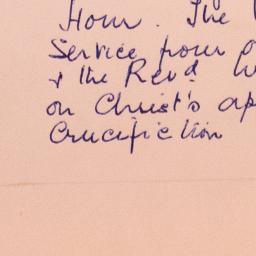 Hour. The
Service from
& the Revd.
on Christ's ap
Crucifiction